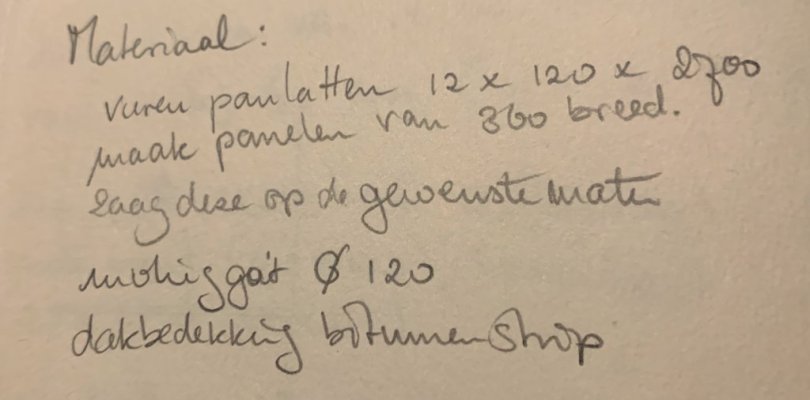 Materiaal:
vuren panlatten 12 x 120 x 2700
maak panelen van 360 breed.
zaag deze op de gewenste maten
invliggat Ø 120
dakbedekking bitumen strip